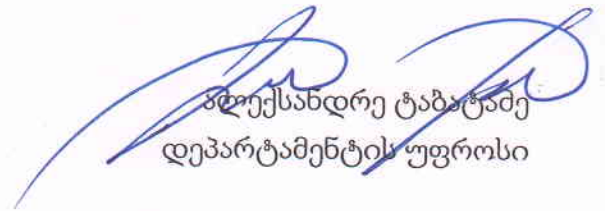 ალექსანდრე ტაბატაძე
დეპარტამენტის უფროსი